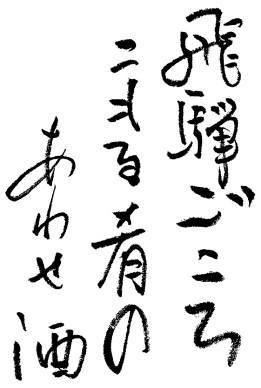 飛騨ごころ
こもる肴の
あわせ酒